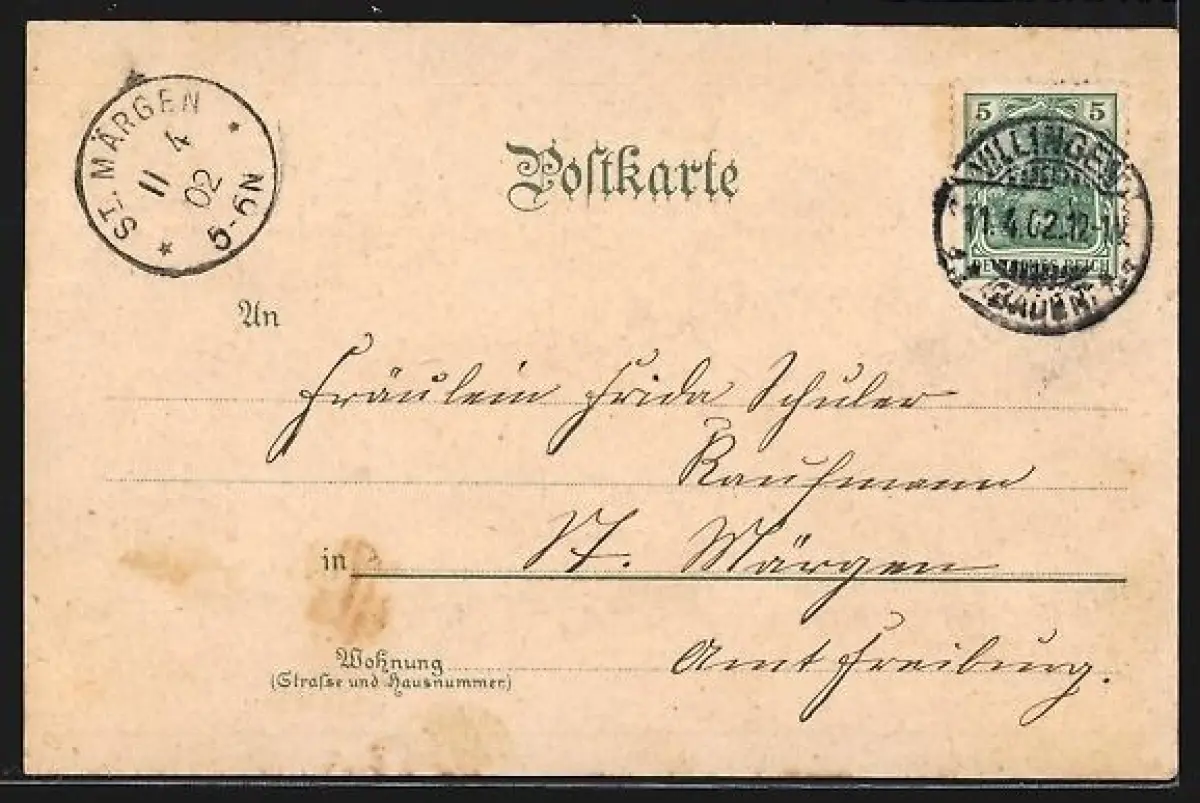 ST. MÄRGEN
11 4 02
5-6N
Postkarte
5 5
VILLINGEN
11.4.02.12-1N
DEUTSCHES REICH
(BADEN)
An
Fräulein Frida Schuler
Kaufmann
in St. Märgen
Wohnung Amt Freiburg.
(Straſse und Hausnummer)